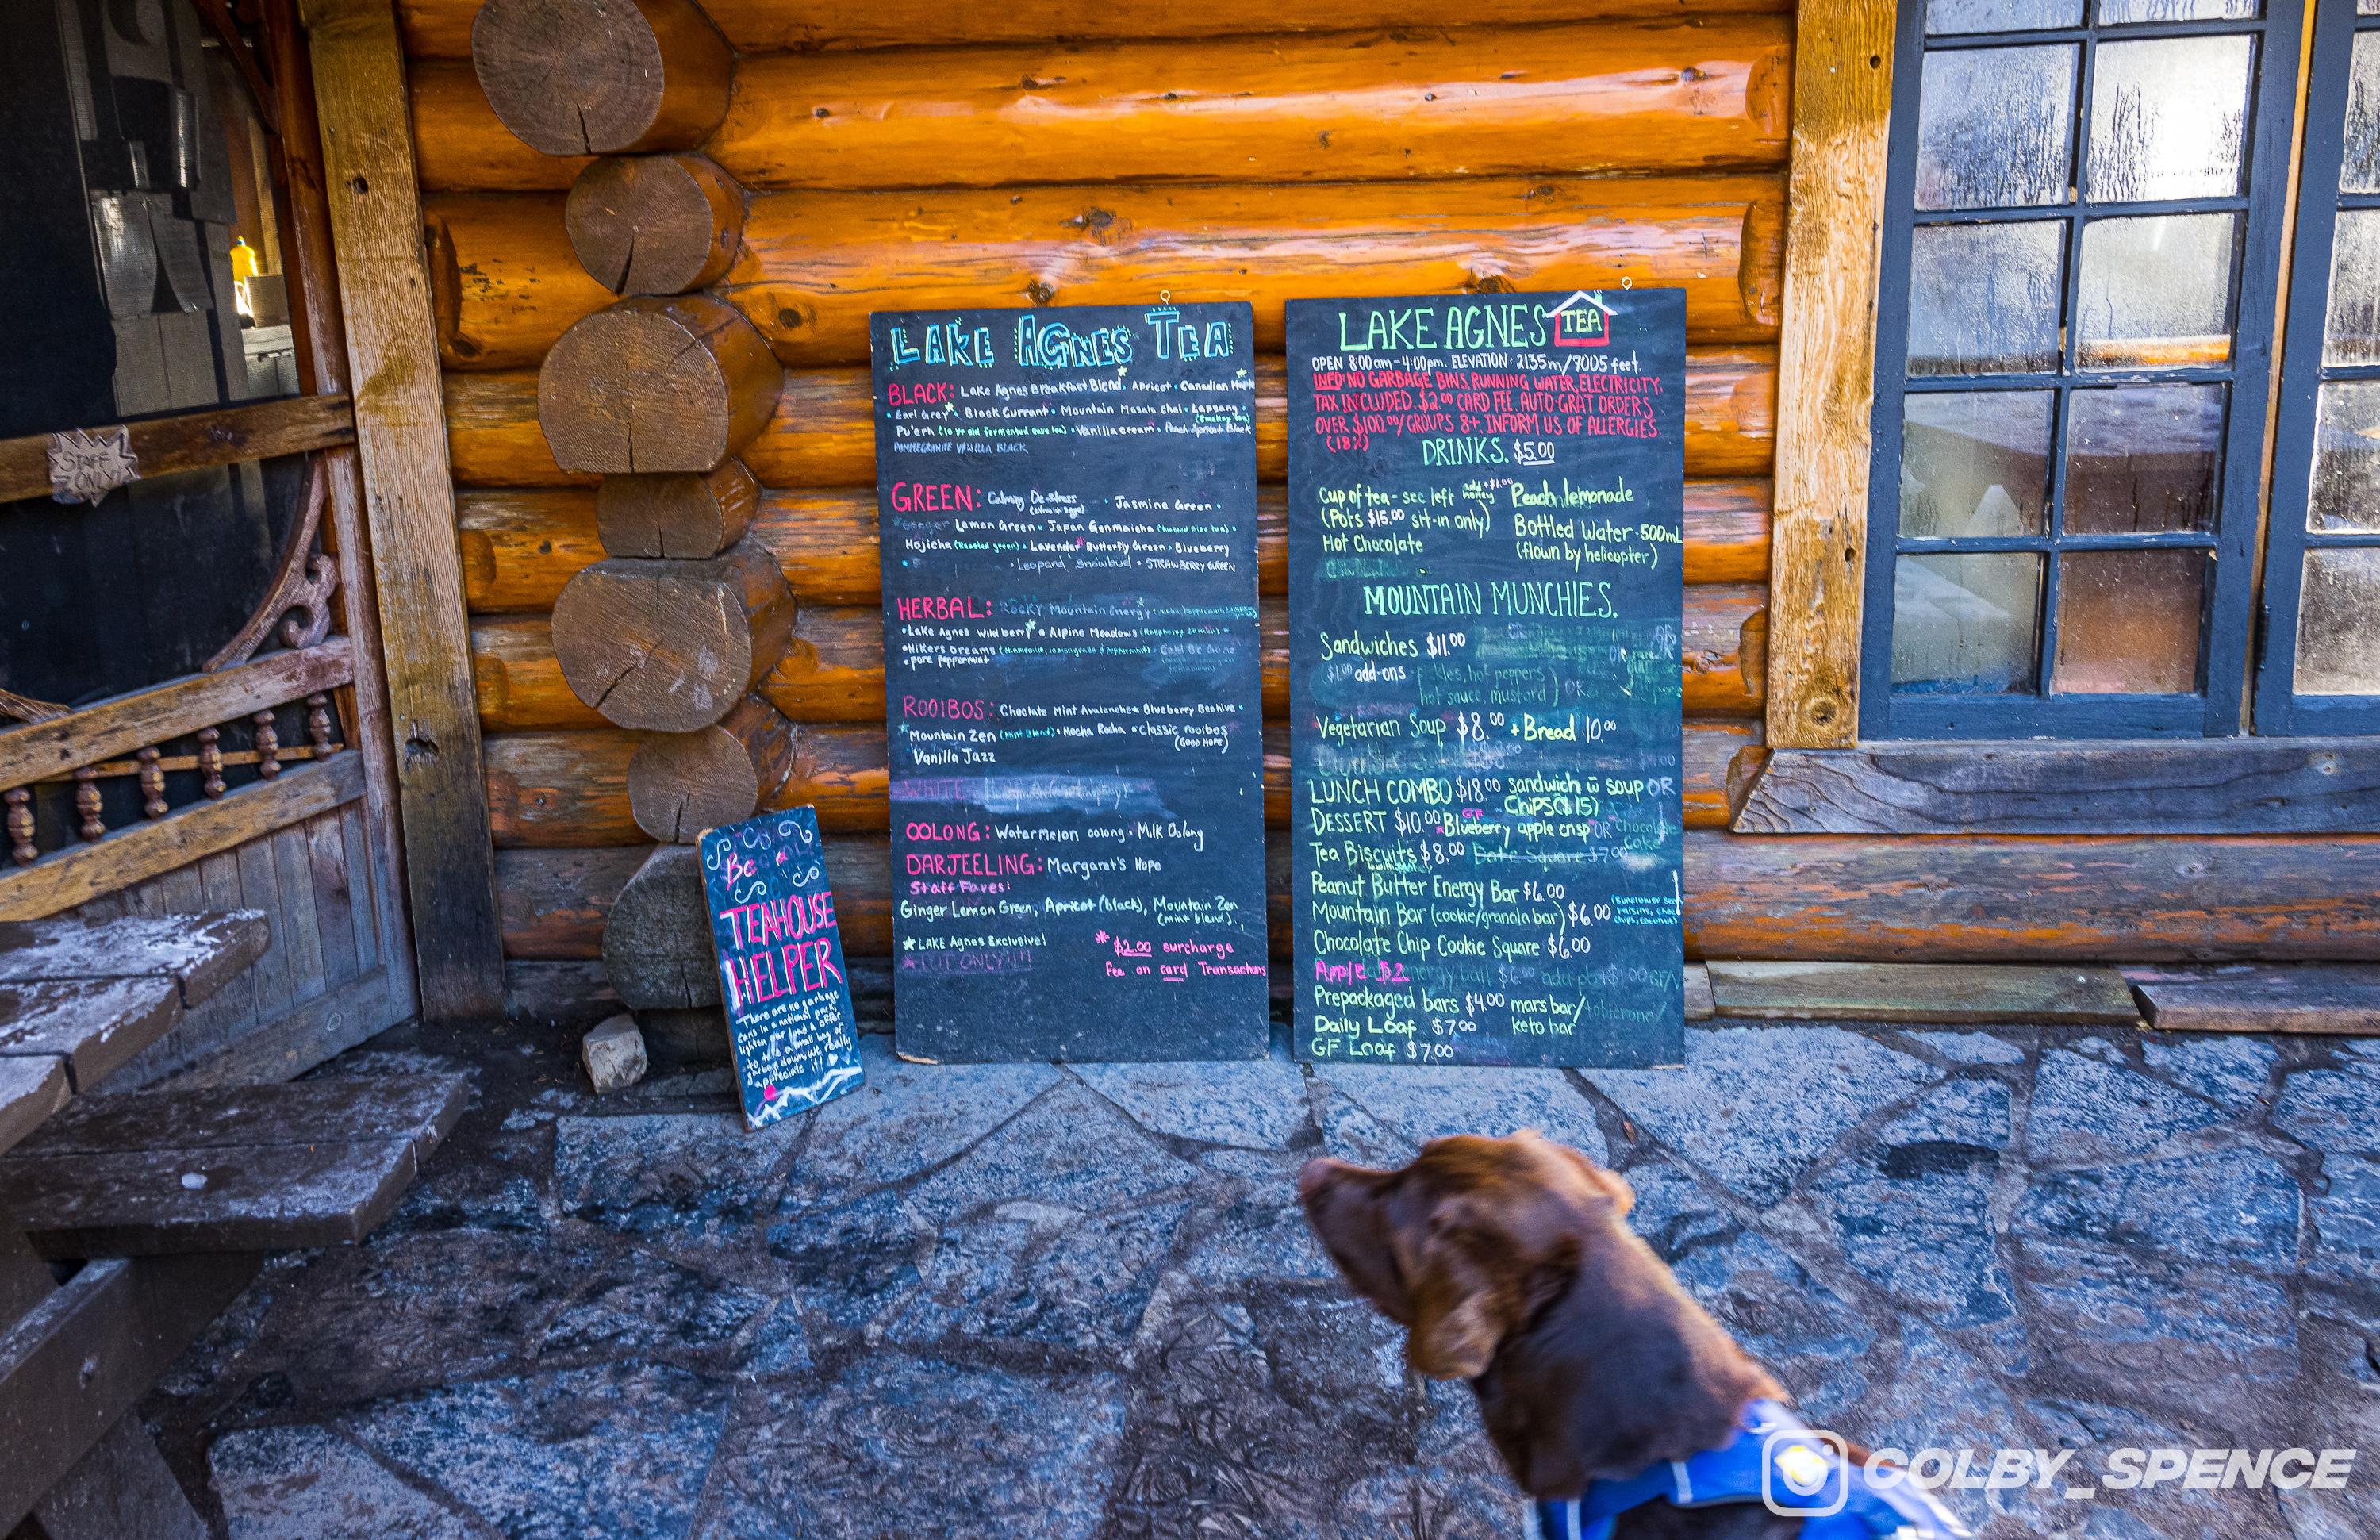 STAFF
ONLY!
Be
TEAHOUSE
HELPER
There are no garbage
cans in a national park,
lighten our load & offer
to take a small bag of
garbage down, we really
appreciate it!
LAKE AGNES TEA
BLACK: Lake Agnes Breakfast Blend • Apricot • Canadian Maple
• Earl Grey • Black Currant • Mountain Masala chai • Lapsang •
(Smokey tea)
Pu'erh (10 yr old fermented cave tea) • Vanilla cream • Peach Apricot Black
POMMEGRANITE VANILLA BLACK
GREEN: Calming De-stress • Jasmine Green •
Ginger Lemon Green • Japan Genmaicha (toasted rice tea) •
Hojicha (Roasted green) • Lavender Butterfly Green • Blueberry
• Leopard Snowbud • STRAWBERRY GREEN
HERBAL: Rocky Mountain Energy
• Lake Agnes Wild berry • Alpine Meadows (Raspberry Lemon) •
• Hikers Dreams (chamomile, lemongrass & peppermint) • Cold Be Gone
• pure peppermint
ROOIBOS: Choclate Mint Avalanche • Blueberry Beehive •
Mountain Zen (mint blend) • Mocha Rocha • classic rooibos
(GOOD HOPE)
Vanilla Jazz
WHITE:
OOLONG: Watermelon oolong • Milk Oolong
DARJEELING: Margaret's Hope
Staff Faves:
Ginger Lemon Green, Apricot (black), Mountain Zen
(mint blend)
★ LAKE Agnes Exclusive!
* $2.00 surcharge
* POT ONLY!!!!
fee on card Transactions
LAKE AGNES TEA
OPEN 8:00am-4:00pm. ELEVATION: 2135m/7005 feet.
INFO: NO GARBAGE BINS, RUNNING WATER, ELECTRICITY,
TAX INCLUDED. $2.00 CARD FEE. AUTO GRAT ORDERS
OVER $100.00/GROUPS 8+. INFORM US OF ALLERGIES.
(18%)
DRINKS. $5.00
Cup of tea - see left add honey +$1.00
(Pots $15.00 sit-in only)
Hot Chocolate
Peach lemonade
Bottled Water • 500mL
(flown by helicopter)
MOUNTAIN MUNCHIES.
Sandwiches $11.00
$1.00 add-ons - pickles, hot peppers
hot sauce, mustard) OR
Vegetarian Soup $8.00 + Bread 10.00
LUNCH COMBO $18.00 sandwich w̄ soup OR
Chips ($15)
DESSERT $10.00 GF Blueberry apple crisp OR Chocolate
Cake
Tea Biscuits $8.00 Date Square $7.00
with JAM
Peanut Butter Energy Bar $6.00
Mountain Bar (cookie/granola bar) $6.00 (Sunflower seeds
raisins, choc
chips, coconut)
Chocolate Chip Cookie Square $6.00
Apple $2 energy ball $6.00 add pb +$1.00 GF/V
Prepackaged bars $4.00 mars bar/toblerone/
keto bar
Daily Loaf $7.00
GF Loaf $7.00
COLBY_SPENCE